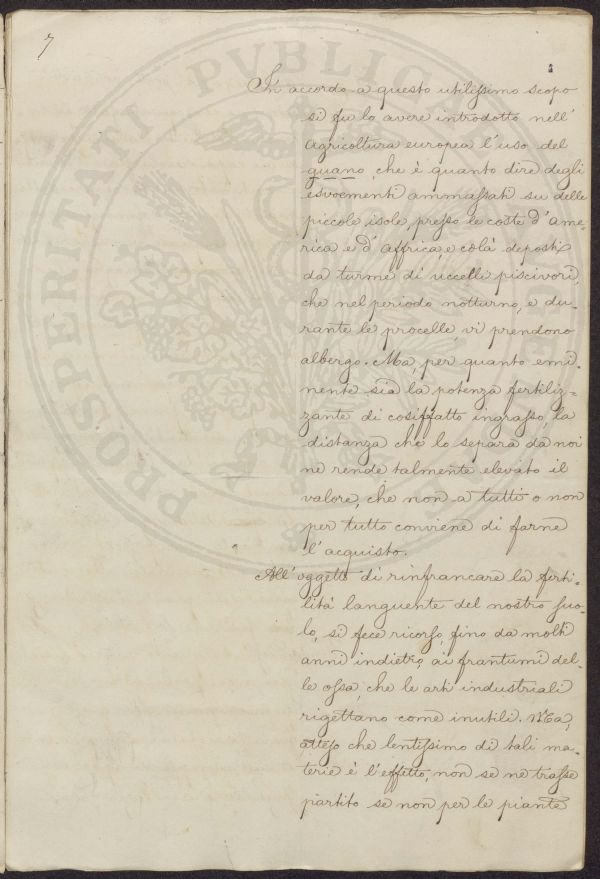 7
In accordo a questo utilissimo scopo
si fu lo avere introdotto nell'
Agricoltura europea l'uso del
guano, che è quanto dire degli
escrementi ammassati su delle
piccole isole, presso le coste d'Ame-
rica e d'Affrica, e colà deposti
da turme di uccelli piscivori,
che nel periodo notturno, e du-
rante le procelle, vi prendono
albergo. Ma, per quanto emi-
nente sia la potenza fertiliz-
zante di cosiffatto ingrasso la
distanza che lo separa da noi
ne rende talmente elevato il
valore, che non a tutti o non
per tutto conviene di farne
l'acquisto.
All'oggetto di rinfrancare la ferti-
lità languente del nostro suo-
lo, si fece ricorso, fino da molti
anni indietro, ai frantumi del-
le ossa, che le arti industriali
rigettano come inutili. Ma,
atteso che lentissimo di tali ma-
terie è l'effetto, non se ne trasse
partito se non per le piante
PROSPERITATI PVBLICAE